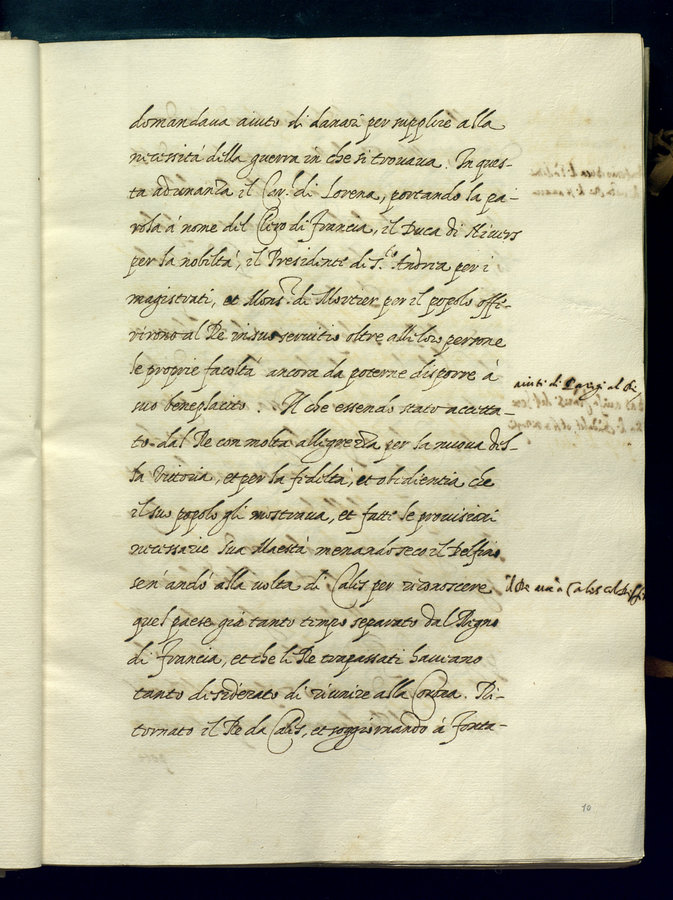 domandaua aiuto di danari per supplire alla
necessità della guerra in che si trouaua. In ques-
ta adunanza il Car.l di Lorena, portando la pa-
rola á nome del Clero di Francia, il Duca di Niuers
per la nobiltà, il Presidente di S.to Andria per i
magistrati, et Mons.r di Mortier per il popolo offe-
rirono al Re in suo seruitio oltre alle loro persone
le proprie facoltà ancora da poterne disporre à
suo beneplacito. Il che essendo stato accetta-
aiuti di Parigi al Re
to dal Re con molta allegrezza per la nuoua del-
la Vittoria, et per la fideltà, et obidientia che
il suo popolo gli mostraua, et fatte le prouisioni
necessarie Sua Maestà menando seco il Delfino
sen'andò alla uolta di Cales per riconoscere
il Re uà a Cales col
quel paese già tanto tempo separato dal Regno
di Francia, et che li Re trapassati haueano
tanto desiderato di riunire alla Corona. Ri-
tornato il Re da Cales, et soggiornando à Fonta-
10